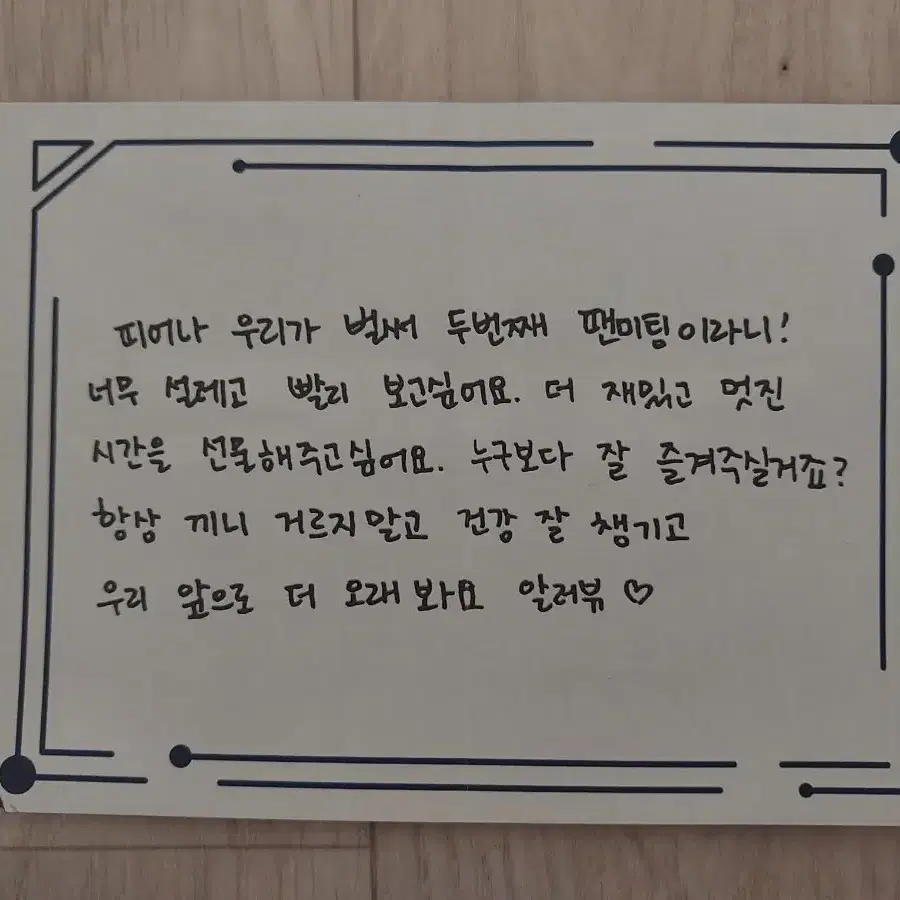 피어나 우리가 벌써 두번째 팬미팅이라니!
너무 설레고 빨리 보고싶어요. 더 재밌고 멋진
시간을 선물해주고싶어요. 누구보다 잘 즐겨주실거죠?
항상 끼니 거르지말고 건강 잘 챙기고
우리 앞으로 더 오래 봐요 알러뷰 ♡